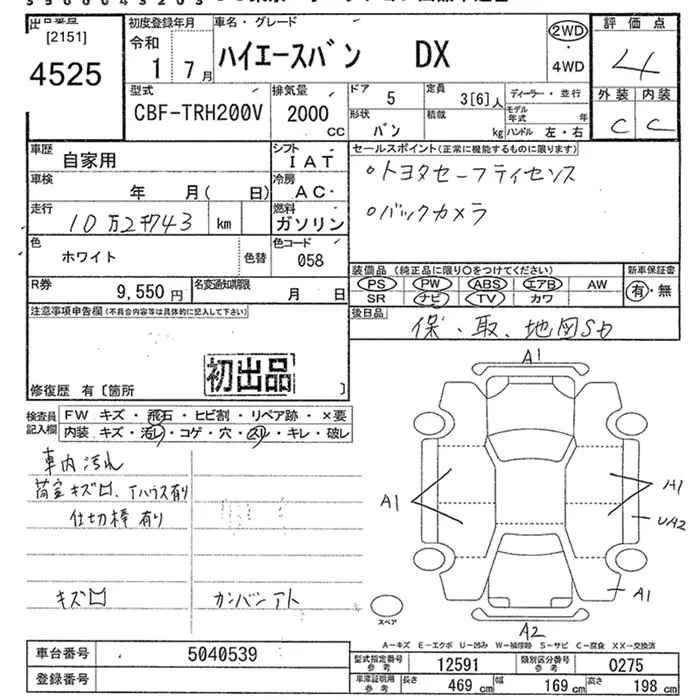 出品番号 初度登録年月 車名・グレード 評価点
[2151] 令和 ハイエースバン DX 2WD 4
4525 1 7月 4WD
型式 排気量 ドア 5 定員 3[6]人 ディーラー・並行 外装 内装
CBF-TRH200V 2000 CC 形状 バン 積載 kg モデル年式 年 ハンドル 左・右 C C
車歴 自家用 シフト IAT セールスポイント(正常に機能するものに限ります)
車検 年 月( 日) 冷房 AC 。トヨタセーフティセンス
走行 10万2千743 km 燃料 ガソリン 。バックカメラ
色 ホワイト 色替 色コード 058
装備品 (純正品に限り〇をつけてください) 新車保証書
R券 9,550円 名変通知期限 月 日 PS PW ABS エアB AW 有・無
SR ナビ TV カワ
注意事項申告欄(不具合内容等は具体的に記入して下さい) 後日品 保・取、地図SD
初出品
修復歴 有〔箇所 〕
検査員記入欄 FW キズ・飛石・ヒビ割・リペア跡・×要
内装 キズ・汚レ・コゲ・穴・スレ・キレ・破レ
車内汚れ
荷室キズ凹、Tハウス有り
仕切棒有り
キズ凹 カンバンアト
A1
A1 A1
UA2
A1
スペア A2
A-キズ E-エクボ U-凹み W-補修跡 S-サビ C-腐食 XX-交換済
車台番号 5040539 型式指定番号 参考 12591 類別区分番号 参考 0275
登録番号 車庫証明用 参考 長さ 469 cm 幅 169 cm 高さ 198 cm